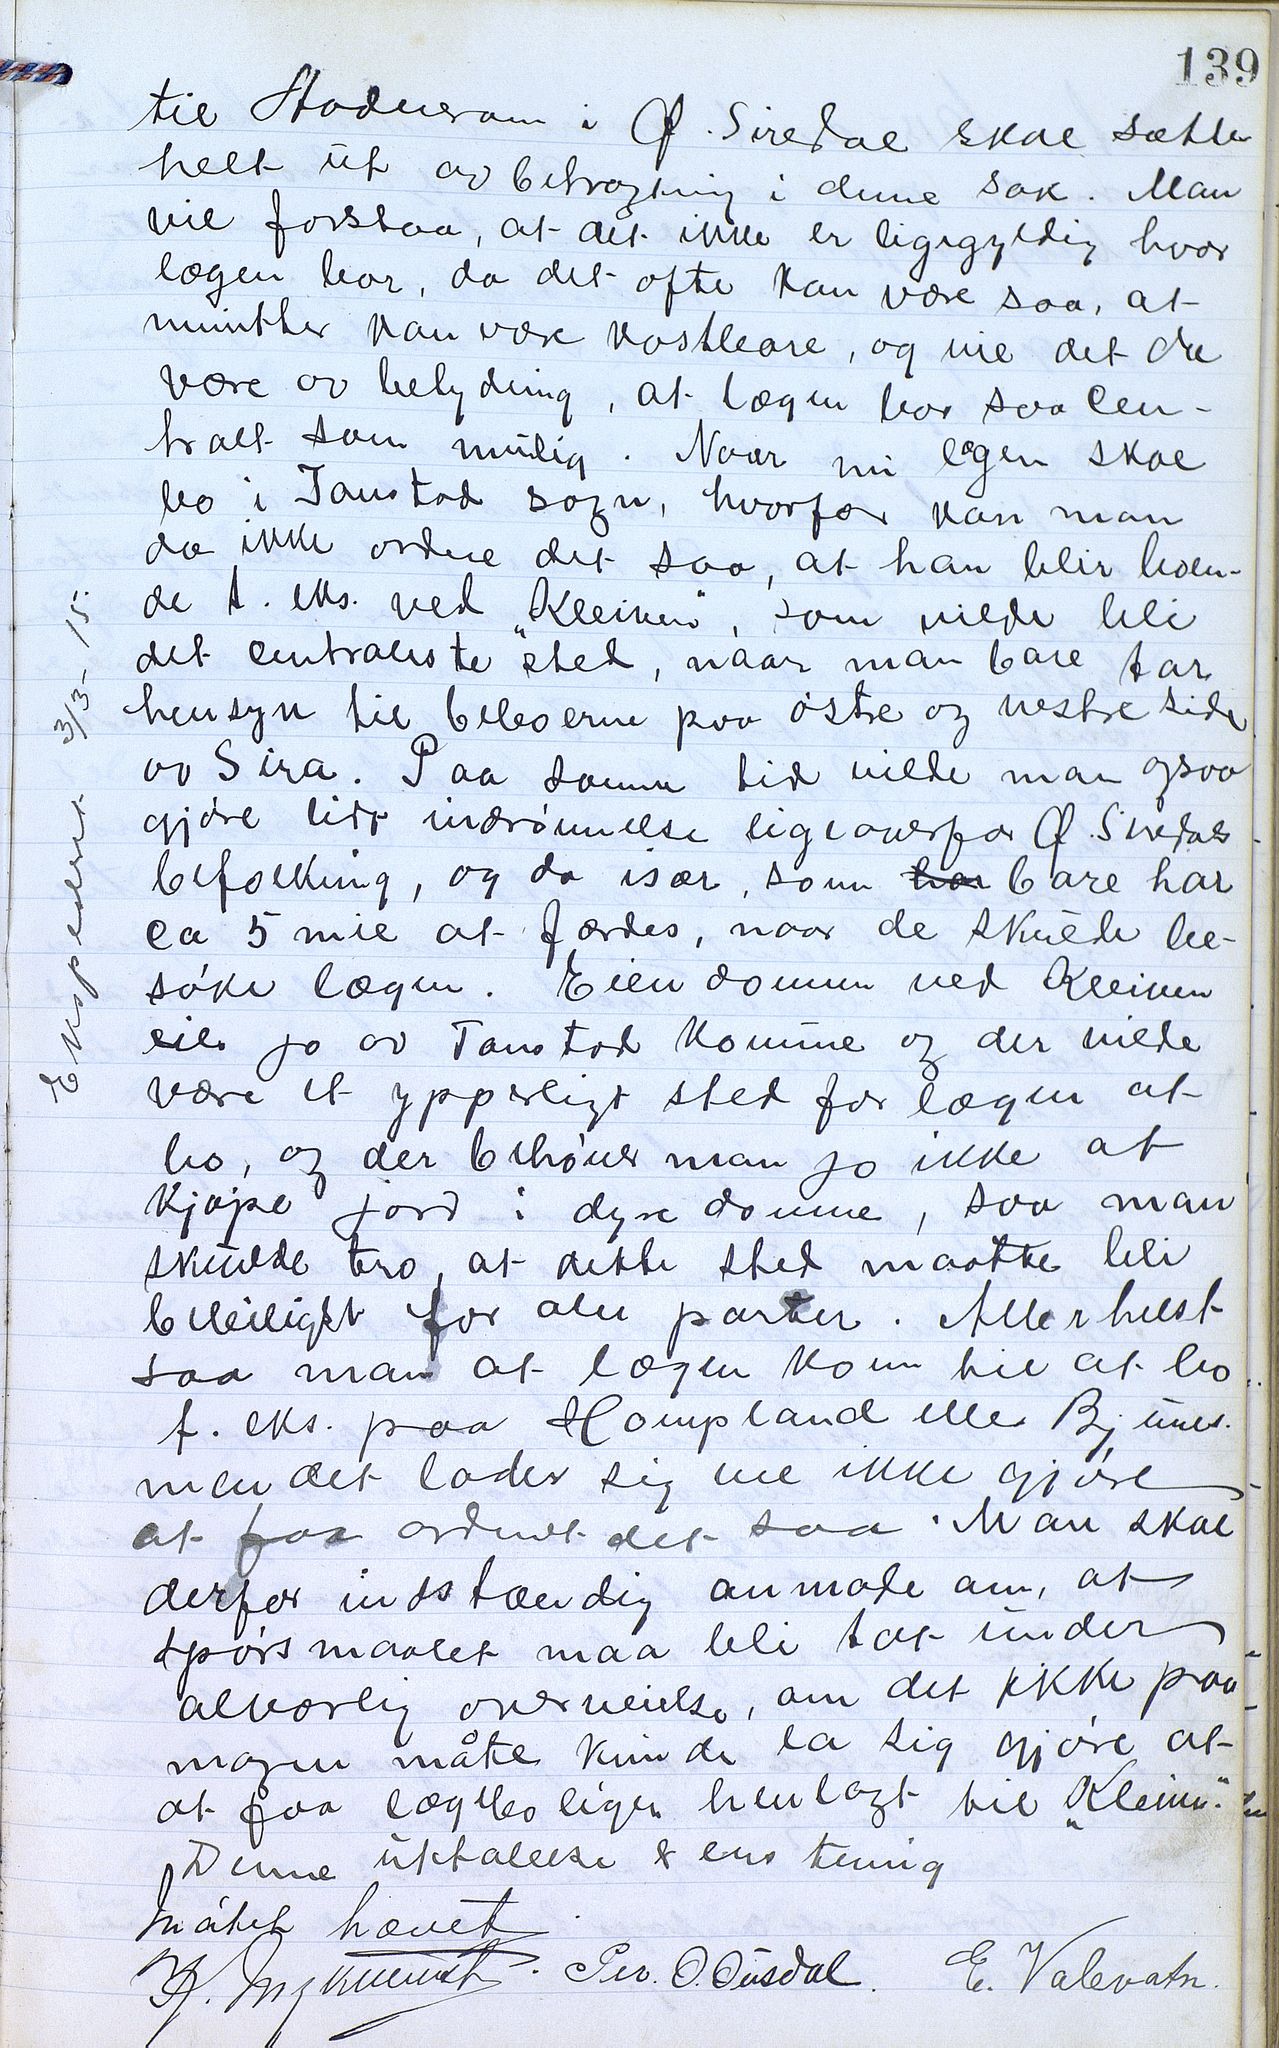 139
til Stoduram i Ø. Siredal skal sættes
helt ut av betragtning i denne sak. Man
vil forstaa, at det ikke er ligegyldig hvor
lægen bor, da det ofte kan være saa, at
minutter kan være kostbare, og vil det da
være av betydning, at lægen bor saa cen-
tralt som mulig. Naar nu lægen skal
bo i Tonstad sogn, hvorfor kan man
da ikke ordne det saa, at han blir boen-
de t. eks. ved „Kleiven", som vilde bli
det centraleste sted, naar man bare tar
hensyn til beboerne paa østre og vestre side
av Sira. Paa samme tid vilde man ogsaa
gjøre lidt indrømmelse ligeoverfor Ø. Siredals
befolkning, og da især, som bare har
ca 5 mil at færdes, naar de skulde be-
søke lægen. Eiendommen ved Kleiven
eies jo av Tonstad komune og der vilde
være et ypperligt sted for lægen at
bo, og der behøver man jo ikke at
kjøpe jord i dyre domme, saa man
skulde tro, at dette sted maatte bli
beleiligt for alle parter. Allerhelst
saa man at lægen kom til at bo
f. eks. paa Hompland eller Bjunes.
men det lader sig vel ikke gjøre
at faa ordnet det saa. Man skal
derfor indstændig anmode om, at
spørsmaalet maa bli tat under
alvorlig overveielse, om det ikke paa
nogen måte kunde la sig gjøre at
at faa lægeboligen henlagt til „Kleiven".
Denne uttalelse er enstemig
Møtet hævet
Per. O. Ousdal. E. Valevatn.
Ekspedert 3/3-15.